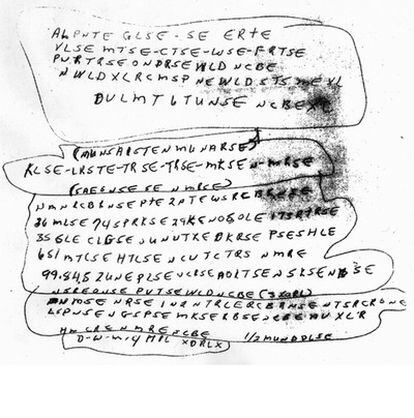 ALPNTE GLSE-SE ERTE
VLSE MTSE-CTSE-WSE-FRTSE
PURTRSE ONDRSE WLD NCBE
NWLDXLRCMSP NEWLD STS ME XL
DULMT 6TUNSE NCBE XC
(MUNSAISTEN MUNARSE)
KLSE-LRSTE-TRSE-TRSE-MKSEN-MRSE
(SAEGNSE SE N MBSE)
NMNRCBRNSE PTE2PTEWSRCBRNSE
36 MLSE 74SPRKSE 29KENOSOLE 173RTRSE
35 GLE CLGSE UNUTXE DKRSE PSESHLE
651 MTCSE HTLSE NCUTCTRS NMRE
99.84.5 2UNE PLSE NCRSE AOLTSE NSKSE NBSE
NSREONSE PUTSE WLD NCBE (3 XORL)
NMSE NRSE IN2NTRLERCBRNSE NTSRCRONE
LSPNSE NGSPSE MKSERBSE NCBE AUXLR
HM CRE NMRE NCBE 1/2 MUNDDLSE
D-W-M-4 MIL XDRLX